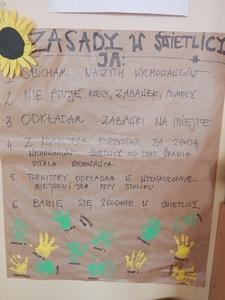 ZASADY W ŚWIETLICY
JA:
SŁUCHAM NASZYCH WYCHOWAWCÓW
2 NIE PSUJĘ RZECZY, ZABAWEK, POMOCY
3 ODKŁADAM ZABAWKI NA MIEJSCE
4 Z KOMPUTERA KORZYSTAM ZA ZGODĄ
WYCHOWAWCY ŚWIETLICY CZAS GRANIA
USTALA WYCHOWAWCA
5 TORNISTRY ODKŁADAM W WYZNACZONYM
MIEJSCU I JEM PRZY STOLIKU
6 BAWIĘ SIĘ ZGODNIE W ŚWIETLICY